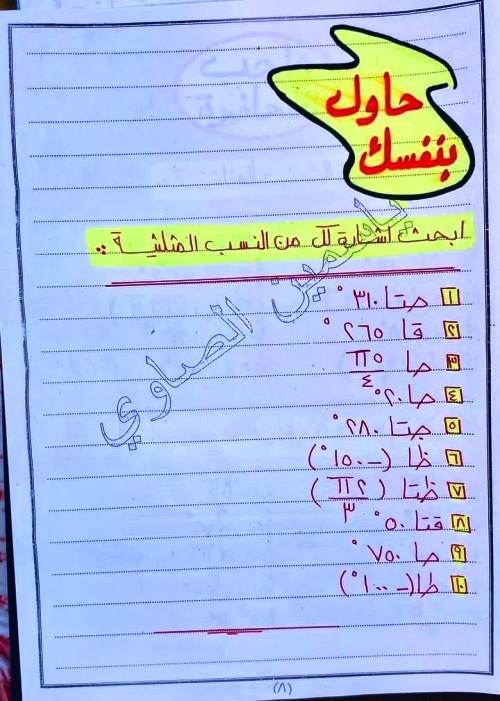 حاول
بنفسك
ابحث اشارة كل من النسب المثلثية :
١ جتا ٣١٠°
٢ قا ٢٦٥°
٣ جا ٥π/٤
٤ جا ٢٠°
٥ جتا ٢٨٠°
٦ ظا (-١٥٠°)
٧ ظتا (٢π/٣)
٨ قتا ٥٠°
٩ جا ٧٥٠°
١٠ ظا (-١٠٠°)
ياسمين الصاوي
(٨)